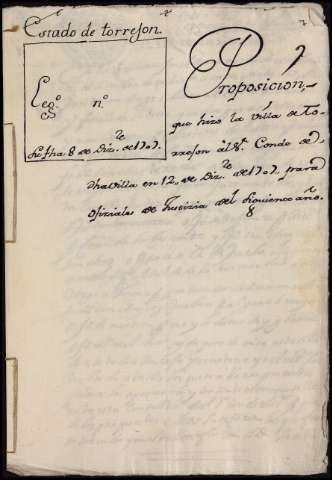 Estado de torrejon.
Leg.º nº
Su fha. 8 de Diz.re de 1707.
Proposición,
que hizo la villa de To-
rrejon al Sr. Conde de
dha villa en 12, de Diz.re de 1707, para
ofiziales de Justizia del siguiente año.
8